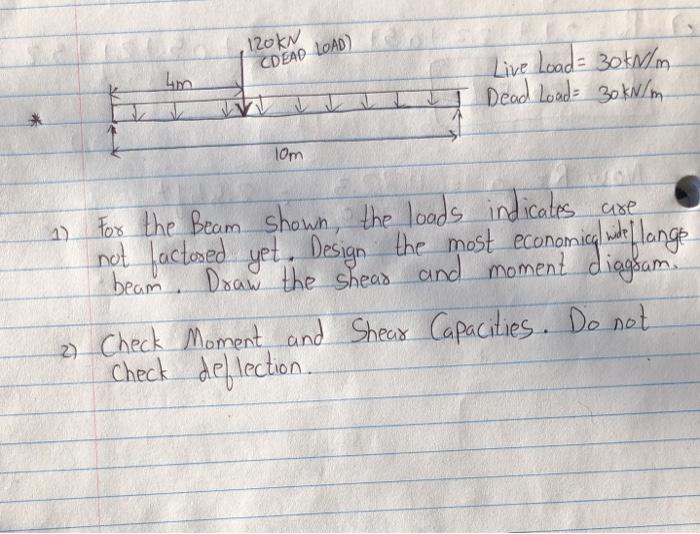 120KN
(DEAD LOAD)
4m
Live Load = 30kN/m
Dead Load = 30kN/m
*
10m
1) For the Beam shown, the loads indicates are
not factored yet. Design the most economical wide flange
beam. Draw the shear and moment diagram.
2) Check Moment and Shear Capacities. Do not
Check deflection.